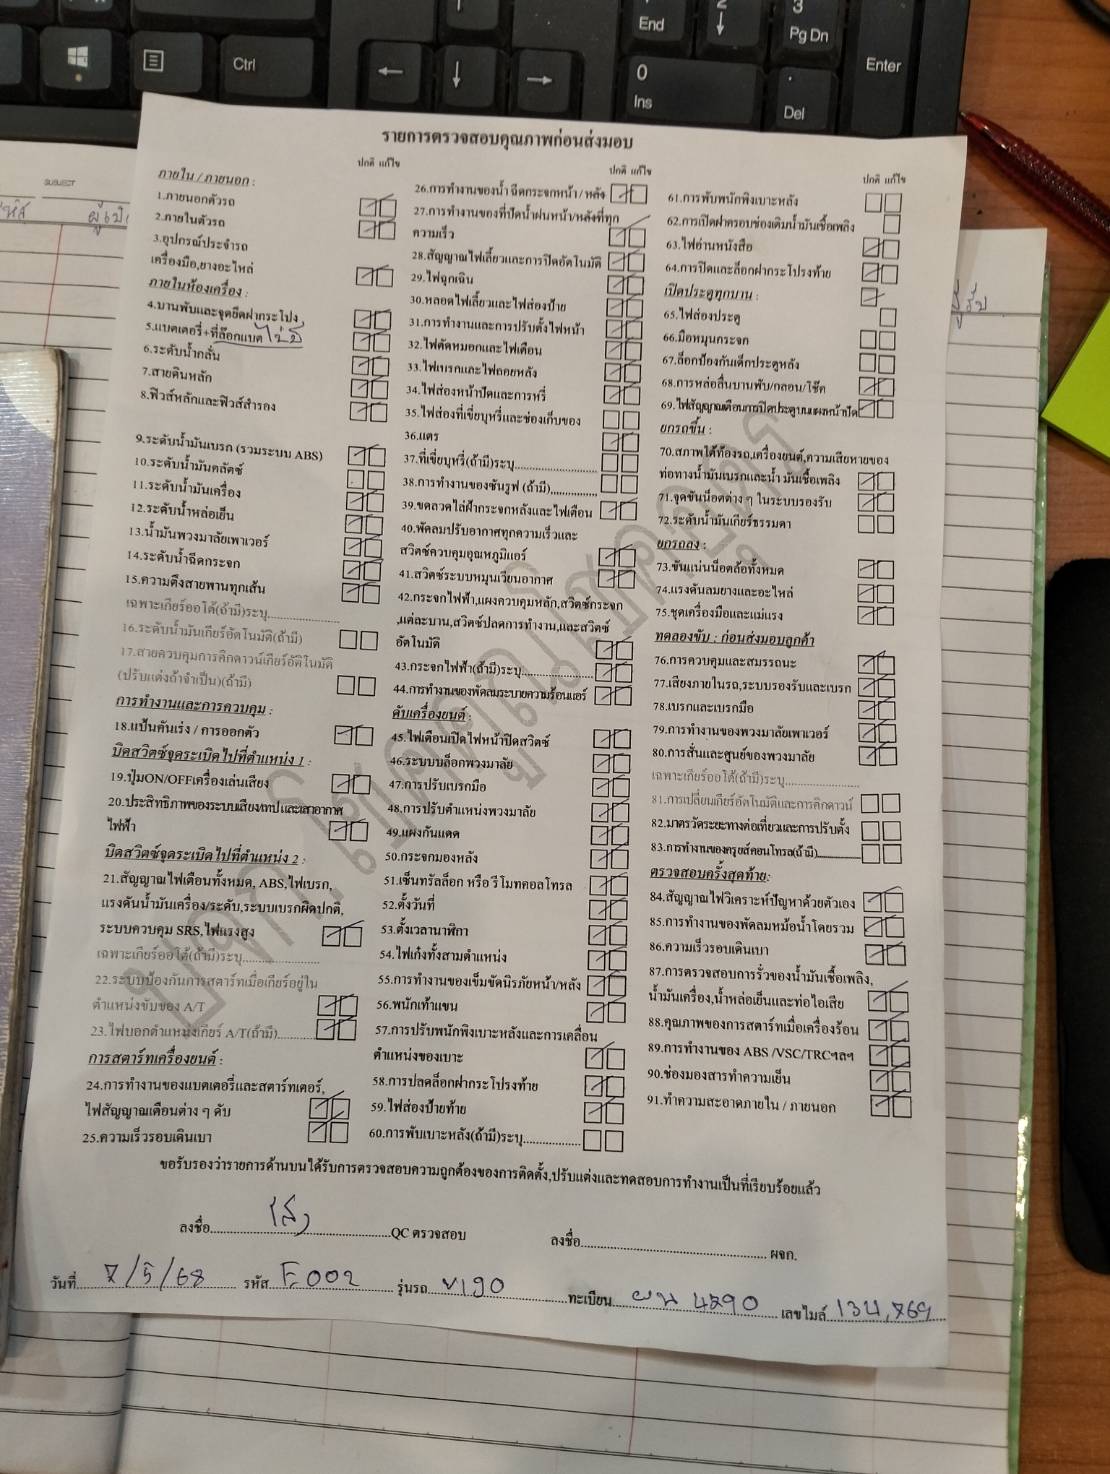 End
3
Pg Dn
Enter
Ctrl
0
Ins
.
Del
SUBJECT
รายการตรวจสอบคุณภาพก่อนส่งมอบ
ปกติ แก้ไข
ภายใน / ภายนอก :
1.ภายนอกตัวรถ
2.ภายในตัวรถ
3.อุปกรณ์ประจำรถ
เครื่องมือ,ยางอะไหล่
ภายในห้องเครื่อง :
4.บานพับและจุดยึดฝากระโปง
5.แบตเตอรี่+ที่ล๊อกแบต ไม่มี
6.ระดับน้ำกลั่น
7.สายดินหลัก
8.ฟิวส์หลักและฟิวส์สำรอง
9.ระดับน้ำมันเบรก (รวมระบบ ABS)
10.ระดับน้ำมันคลัตช์
11.ระดับน้ำมันเครื่อง
12.ระดับน้ำหล่อเย็น
13.น้ำมันพวงมาลัยเพาเวอร์
14.ระดับน้ำฉีดกระจก
15.ความตึงสายพานทุกเส้น
เฉพาะเกียร์ออโต้(ถ้ามี)ระบุ
16.ระดับน้ำมันเกียร์อัตโนมัติ(ถ้ามี)
17.สายควบคุมการคิกดาวน์เกียร์อัติโนมัติ
(ปรับแต่งถ้าจำเป็น)(ถ้ามี)
การทำงานและการควบคุม :
18.แป้นคันเร่ง / การออกตัว
บิดสวิตซ์จุดระเบิดไปที่ตำแหน่ง 1 :
19.ปุ่มON/OFFเครื่องเล่นเสียง
20.ประสิทธิภาพของระบบเสียงเทปและเสาอากาศ
ไฟฟ้า
บิดสวิตซ์จุดระเบิดไปที่ตำแหน่ง 2 :
21.สัญญาณไฟเตือนทั้งหมด, ABS,ไฟเบรก,
แรงดันน้ำมันเครื่อง/ระดับ,ระบบเบรกผิดปกติ,
ระบบควบคุม SRS,ไฟแรงสูง
เฉพาะเกียร์ออโต้(ถ้ามี)ระบุ
22.ระบบป้องกันการสตาร์ทเมื่อเกียร์อยู่ใน
ตำแหน่งขับของ A/T
23.ไฟบอกตำแหน่งเกียร์ A/T(ถ้ามี)
การสตาร์ทเครื่องยนต์ :
24.การทำงานของแบตเตอรี่และสตาร์ทเตอร์,
ไฟสัญญาณเตือนต่าง ๆ ดับ
25.ความเร็วรอบเดินเบา
ปกติ แก้ไข
26.การทำงานของน้ำ ฉีดกระจกหน้า/ หลัง
27.การทำงานของที่ปัดน้ำฝนหน้า/หลังที่ทุก
ความเร็ว
28.สัญญาณไฟเลี้ยวและการปิดอัตโนมัติ
29.ไฟฉุกเฉิน
30.หลอดไฟเลี้ยวและไฟส่องป้าย
31.การทำงานและการปรับตั้งไฟหน้า
32.ไฟตัดหมอกและไฟเดือน
33.ไฟเบรกและไฟถอยหลัง
34.ไฟส่องหน้าปัดและการหรี่
35.ไฟส่องที่เขี่ยบุหรี่และช่องเก็บของ
36.แตร
37.ที่เขี่ยบุหรี่(ถ้ามี)ระบุ
38.การทำงานของซันรูฟ (ถ้ามี)
39.ขดลวดไล่ฝ้ากระจกหลังและไฟเตือน
40.พัดลมปรับอากาศทุกความเร็วและ
สวิตช์ควบคุมอุณหภูมิแอร์
41.สวิตช์ระบบหมุนเวียนอากาศ
42.กระจกไฟฟ้า,แผงควบคุมหลัก,สวิตช์กระจก
,แต่ละบาน,สวิตช์ปลดการทำงาน,และสวิตซ์
อัตโนมัติ
43.กระจกไฟฟ้า(ถ้ามี)ระบุ
44.การทำงานของพัดลมระบายความร้อนแอร์
ดับเครื่องยนต์ :
45.ไฟเตือนเปิดไฟหน้าปิดสวิตซ์
46.ระบบบล็อกพวงมาลัย
47.การปรับเบรกมือ
48.การปรับตำแหน่งพวงมาลัย
49.แผงกันแดด
50.กระจกมองหลัง
51.เซ็นทรัลล็อก หรือ รีโมทคอลโทรล
52.ตั้งวันที่
53.ตั้งเวลานาฬิกา
54.ไฟเก๋งทั้งสามตำแหน่ง
55.การทำงานของเข็มขัดนิรภัยหน้า/หลัง
56.พนักเท้าแขน
57.การปรับพนักพิงเบาะหลังและการเคลื่อน
ตำแหน่งของเบาะ
58.การปลดล็อกฝากระโปรงท้าย
59.ไฟส่องป้ายท้าย
60.การพับเบาะหลัง(ถ้ามี)ระบุ
ปกติ แก้ไข
61.การพับพนักพิงเบาะหลัง
62.การเปิดฝาครอบช่องเติมน้ำมันเชื้อเพลิง
63.ไฟอ่านหนังสือ
64.การปิดและล็อกฝากระโปรงท้าย
เปิดประตูทุกบาน :
65.ไฟส่องประตู
66.มือหมุนกระจก
67.ล็อกป้องกันเด็กประตูหลัง
68.การหล่อลื่นบานพับ/กลอน/โช๊ค
69.ไฟสัญญาณเตือนการปิดประตูบนแผงหน้าปัด
ยกรถขึ้น :
70.สภาพใต้ท้องรถ,เครื่องยนต์,ความเสียหายของ
ท่อทางน้ำมันเบรกและน้ำ มันเชื้อเพลิง
71.จุดขันน็อตต่าง ๆ ในระบบรองรับ
72.ระดับน้ำมันเกียร์ธรรมดา
ยกรถลง :
73.ขันแน่นน็อตล้อทั้งหมด
74.แรงดันลมยางและอะไหล่
75.ชุดเครื่องมือและแม่แรง
ทดลองขับ : ก่อนส่งมอบลูกค้า
76.การควบคุมและสมรรถนะ
77.เสียงภายในรถ,ระบบรองรับและเบรก
78.เบรกและเบรกมือ
79.การทำงานของพวงมาลัยเพาเวอร์
80.การสั่นและศูนย์ของพวงมาลัย
เฉพาะเกียร์ออโต้(ถ้ามี)ระบุ
81.การเปลี่ยนเกียร์อัตโนมัติและการคิกดาวน์
82.มาตรวัดระยะทางต่อเที่ยวและการปรับตั้ง
83.การทำงานของครูยส์คอนโทรล(ถ้ามี)
ตรวจสอบครั้งสุดท้าย:
84.สัญญาณไฟวิเคราะห์ปัญหาด้วยตัวเอง
85.การทำงานของพัดลมหม้อน้ำโดยรวม
86.ความเร็วรอบเดินเบา
87.การตรวจสอบการรั่วของน้ำมันเชื้อเพลิง,
น้ำมันเครื่อง,น้ำหล่อเย็นและท่อไอเสีย
88.คุณภาพของการสตาร์ทเมื่อเครื่องร้อน
89.การทำงานของ ABS /VSC/TRCฯลฯ
90.ช่องมองสารทำความเย็น
91.ทำความสะอาดภายใน / ภายนอก
ขอรับรองว่ารายการด้านบนได้รับการตรวจสอบความถูกต้องของการติดตั้ง,ปรับแต่งและทดสอบการทำงานเป็นที่เรียบร้อยแล้ว
ลงชื่อ QC ตรวจสอบ
ลงชื่อ ผจก.
วันที่ 7/5/68 รหัส E002 รุ่นรถ VIGO ทะเบียน ผน 4290 เลขไมล์ 134,769